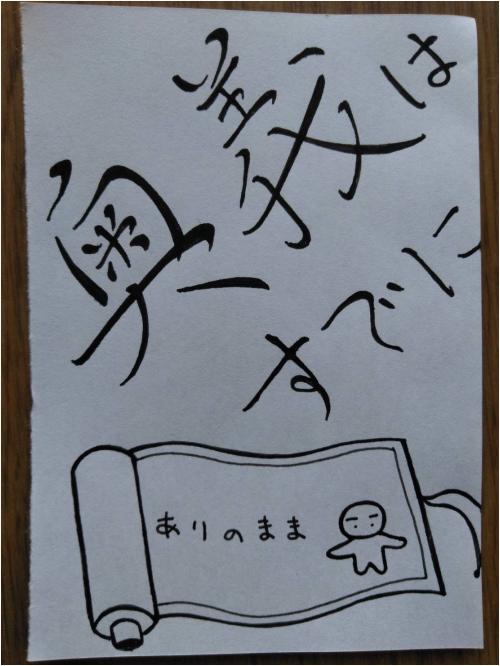 奥義は
すでに
ありのまま